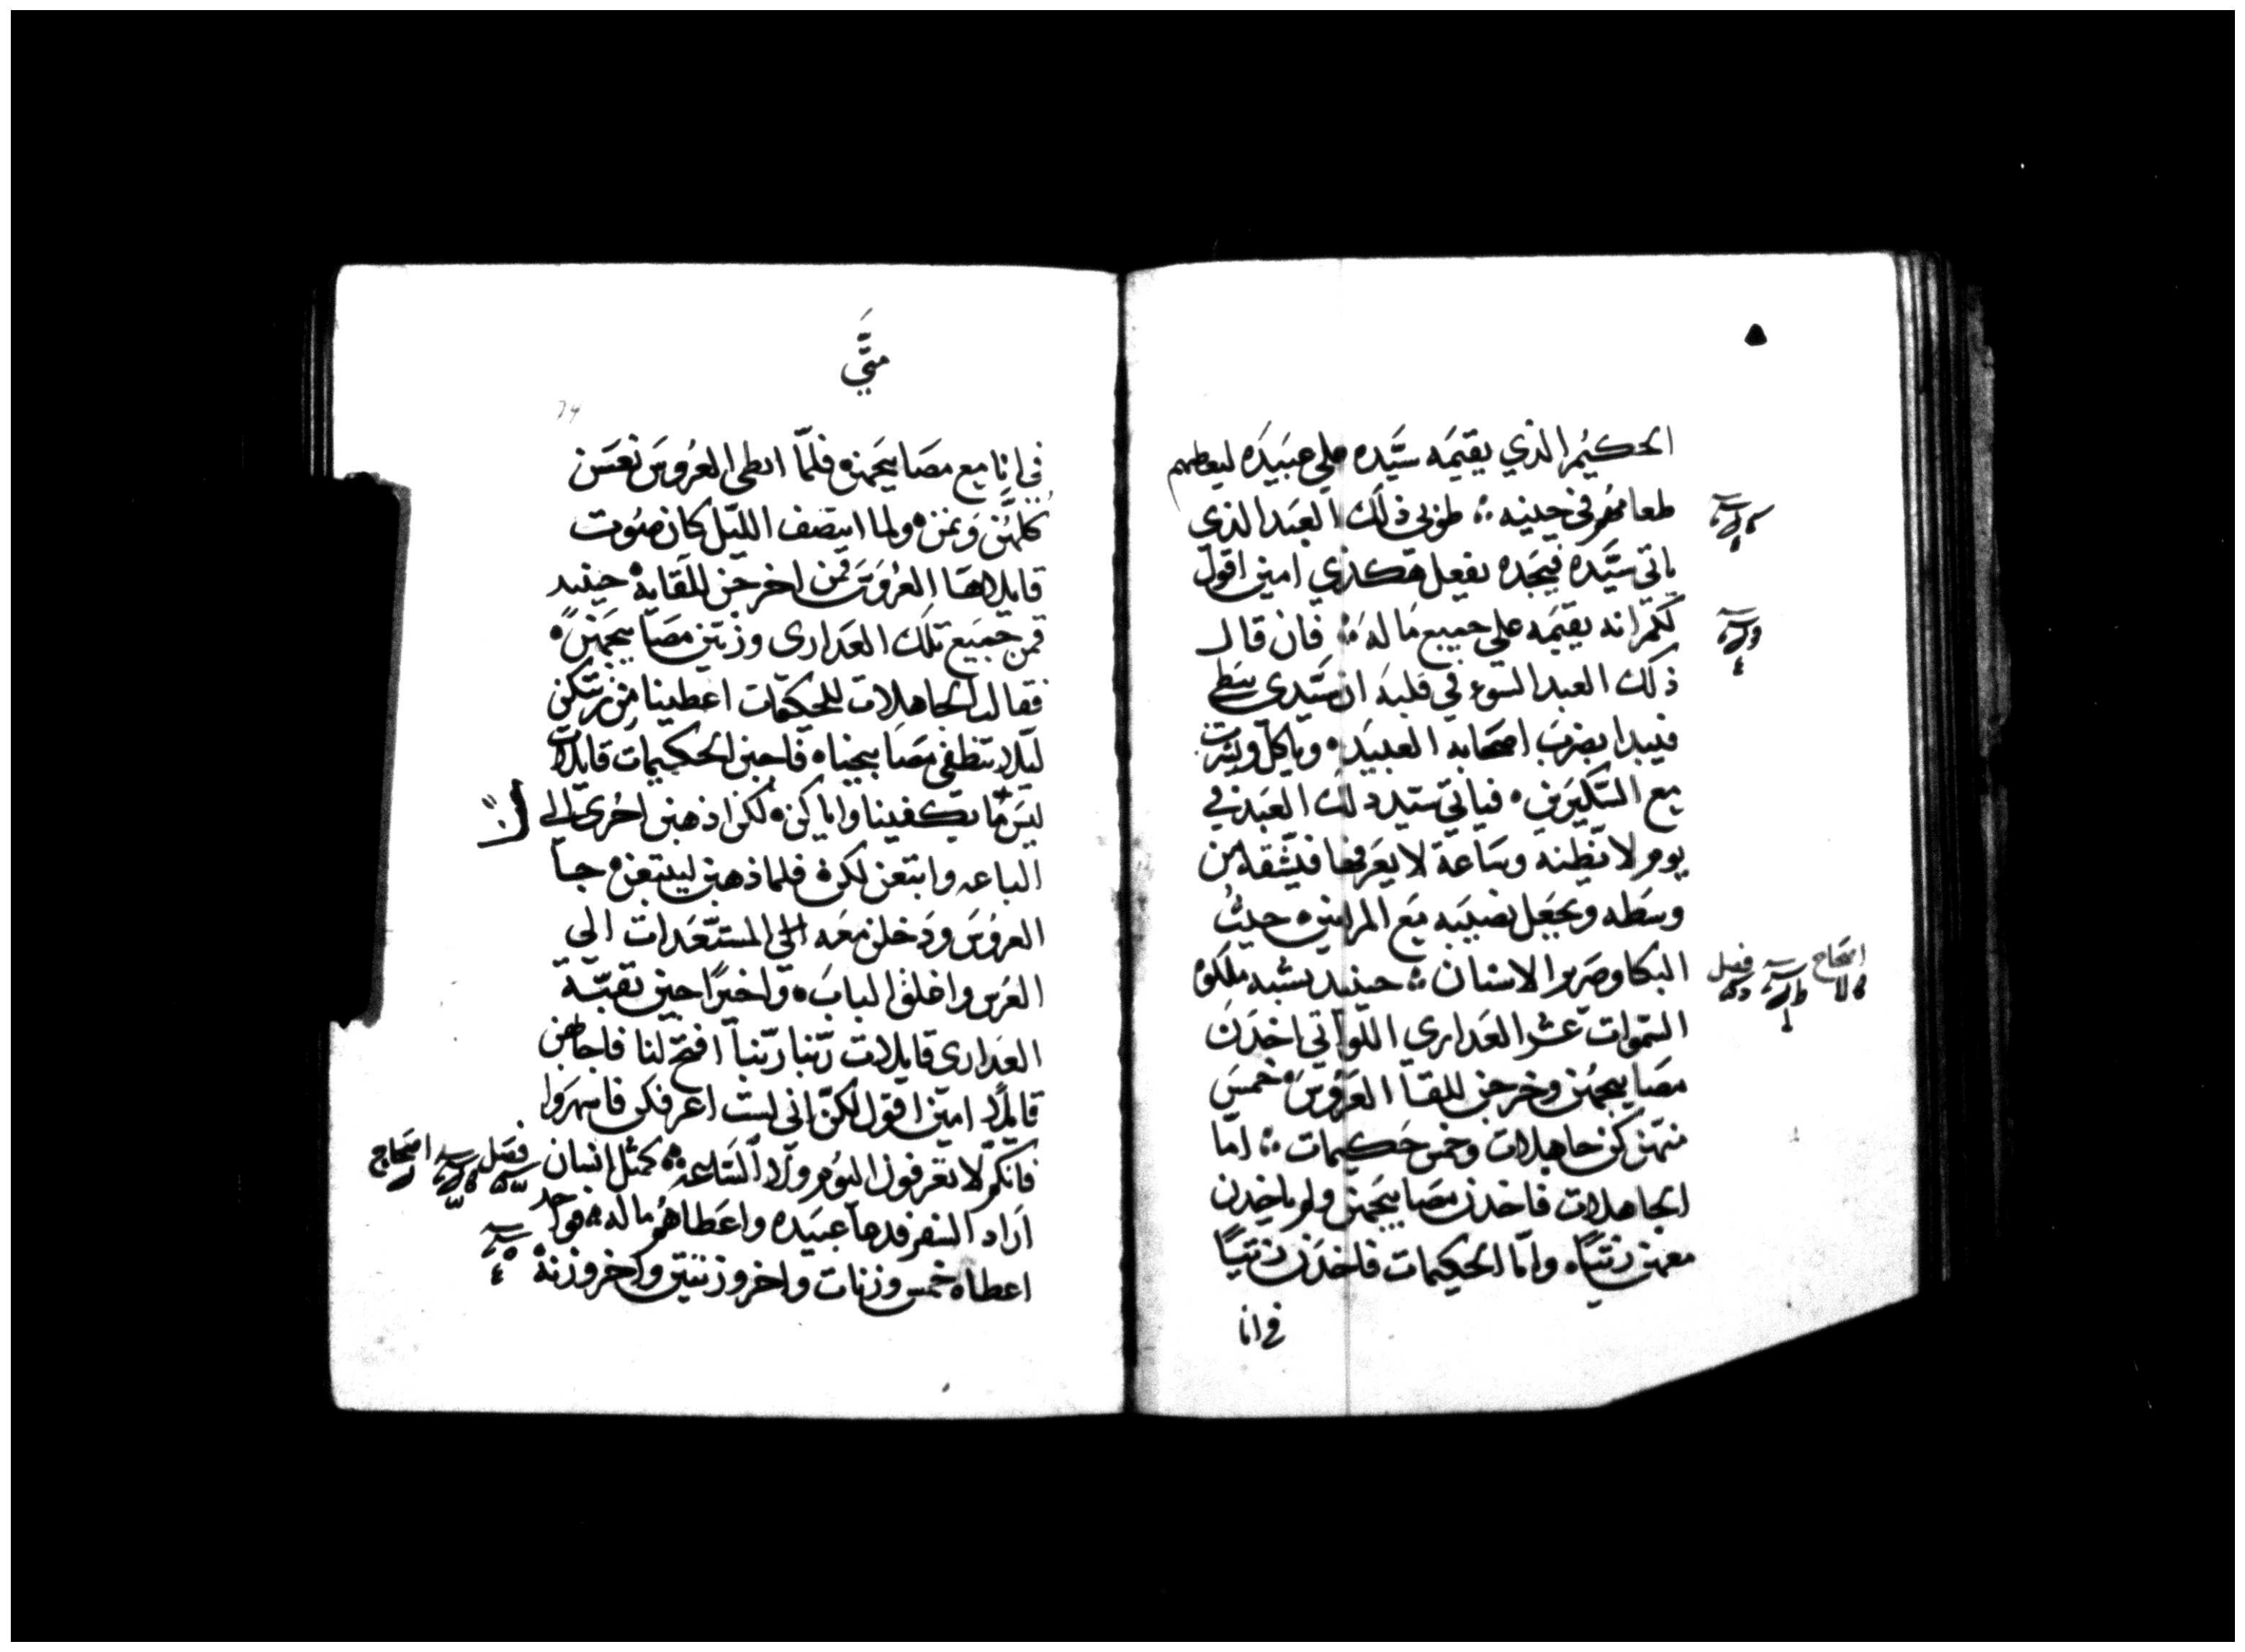 الحكيم الذي يقيمه سيده علي عبيده ليعطيهم
طعامهم في حينه ؞ طوبي ذلك العبد الذي
ياتي سيده فيجده يفعل هكذي امين اقول
لكم انه يقيمه علي جميع ماله ؞ فان قال
ذلك العبد السوء في قلبه ان سيدي يبطي
فيبدا يضرب اصحابه العبيد ه وياكل ويشرب
مع السكيرين ه فياتي سيد ذلك العبد في
يوم لا يظنه وساعة لا يعرفها فيشقه من
وسطه ويجعل نصيبه مع المرايين ه حيث
البكا وصرير الاسنان ؞ حينيد يشبه ملكوة
السموات عشر العداري اللواتي اخدن
مصابيحهن وخرجن للقا العروس ه خمس
منهن كن جاهلات وخمس حكيمات ؞ اما
الجاهلات فاخدن مصابيحهن ولم ياخدن
معهن زيتاً ه واما الحكيمات فاخدن زيتياً
في انا
اصحاح
فصل
متَّي
في انا مع مصابيحهن ه فلمّا ابطي العروس نعسن
كلهن ونمن ه ولما انتصف الليل كان صوت
قايلا هَا العروس قمن اخرجن للقايه حينيد
قمن جميع تلك العداري وزين مصابيحهن ه
فقالت الجاهلات للحكيمات اعطينا من زيتكن
ليلا تنطفي مصابيحنا ه فاجبن الحكيمات قايلات
ليس ما يكفينا واياكن ه لكن اذهبن احري الي
الباعه وابتعن لكن ه فلما ذهبن ليبتعن ه جا
العروس ودخلن معه المستعدات الي
العرس واغلق الباب ه واخيراً جين بقية
العداري قايلات ربنا ربنا افتح لنا فاجابهن
قايلاً امين اقول لكنّ اني لست اعرفكن فاسهروا
فانكم لا تعرفون اليوم ولا الساعه ؞ كمثل انسان
اراد السفر فدعا عبيده واعطاهم ماله ؞ فواحد
اعطاه خمس وزنات واخر وزنتين واخر وزنة
فصل
اصحاح